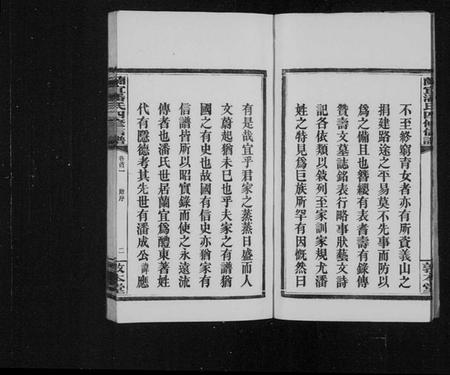 不至終窮青女者亦有所資義山之
捐建路途之平易莫不先事而防以
為之備且也簪纓有表者壽有錄傳
贊壽文墓誌銘表行略事狀藝文詩
記各依類以敘列至家訓家規尤潘
姓之特見為巨族所罕有因慨然曰
有是哉宜乎君家之蒸蒸日盛而人
文蔚起猶未已也乎夫家之有譜猶
國之有史也故國有信史亦猶家有
信譜皆所以昭實錄而使之永遠流
傳者也潘氏世居蘭宜為醴東著姓
代有隱德者其先世有潘成公諱應
蘭宜潘氏四修信譜
卷首一
二
敦本堂
蘭宜潘氏四修信譜
敦本堂